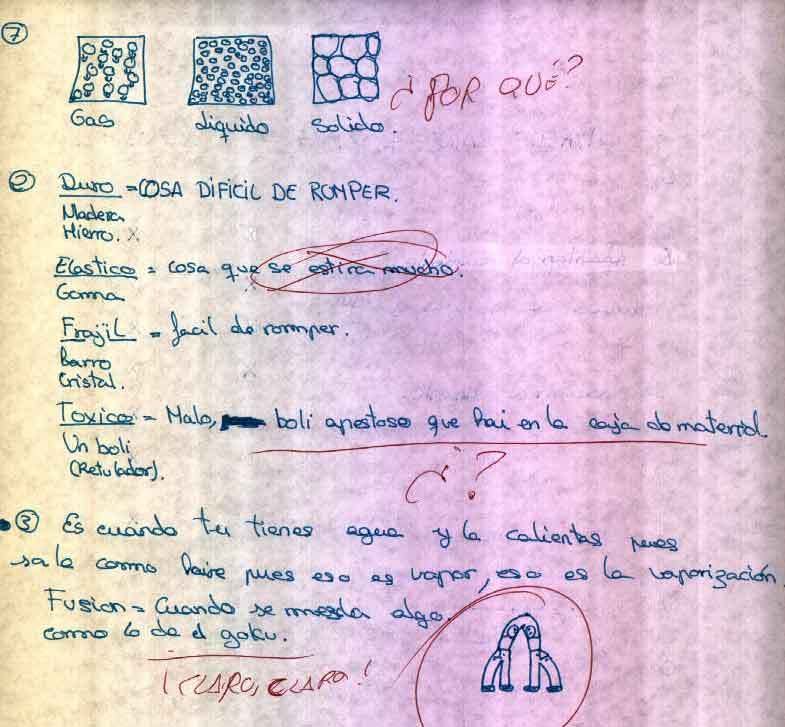 7
Gas liquido solido.
¿POR QUÉ?
2 Duro = COSA DIFICIL DE ROMPER.
Madera
Hierro. x
Elastico = cosa que se estira mucho.
Goma
FrajiL = facil de rormper.
Barro
Cristal.
Toxico = Malo, boli apestoso que hai en la caja do material.
Un boli
(Retulador).
¿?
3 Es cuándo tu tienes agua y la calientas pues
sale como haire pues eso es vapor, eso es la vaporización.
Fusion = Cuando se mezda algo.
como lo de el goku.
¡CLARO, CLARO!